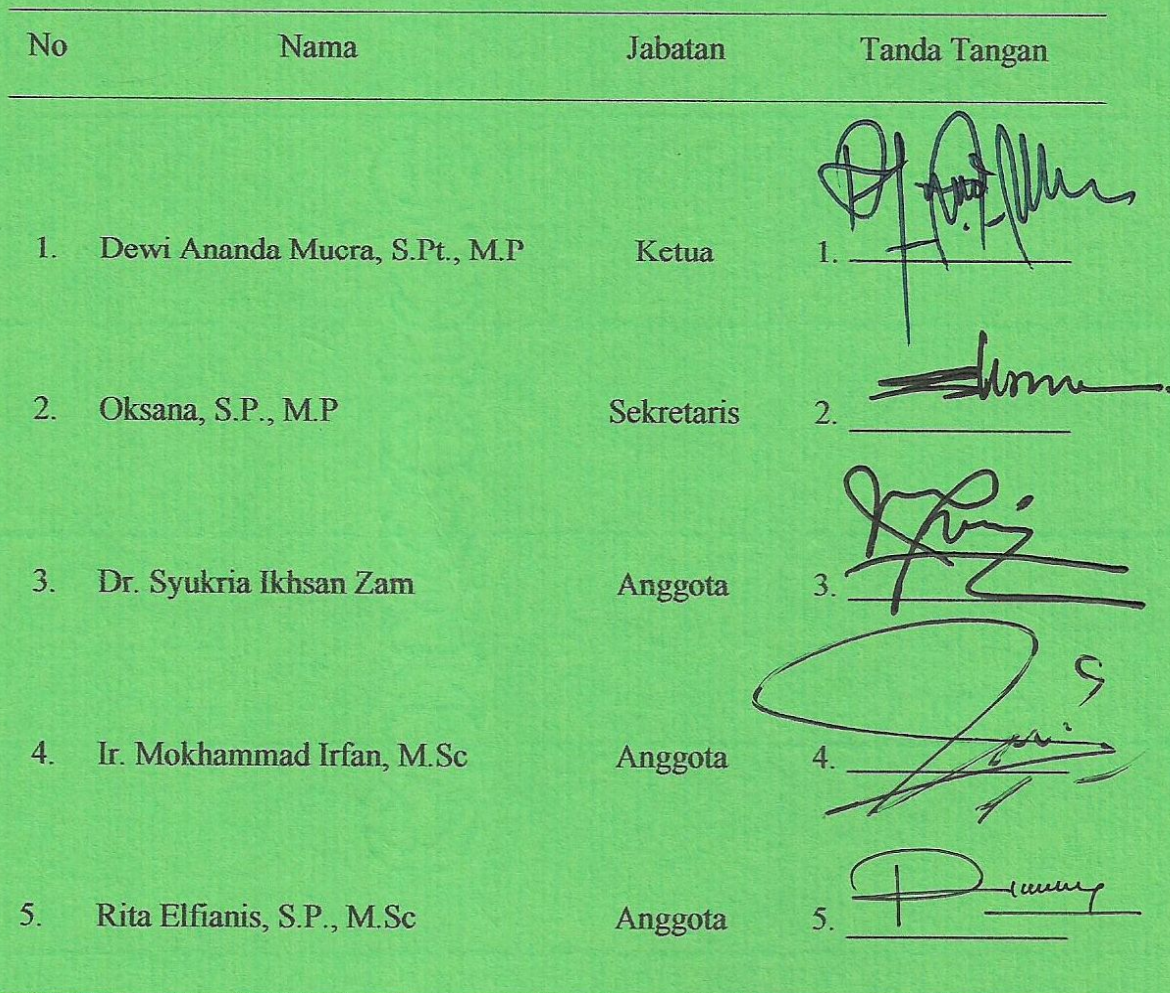 No Nama Jabatan Tanda Tangan
1. Dewi Ananda Mucra, S.Pt., M.P Ketua 1.
2. Oksana, S.P., M.P Sekretaris 2.
3. Dr. Syukria Ikhsan Zam Anggota 3.
4. Ir. Mokhammad Irfan, M.Sc Anggota 4.
5. Rita Elfianis, S.P., M.Sc Anggota 5.